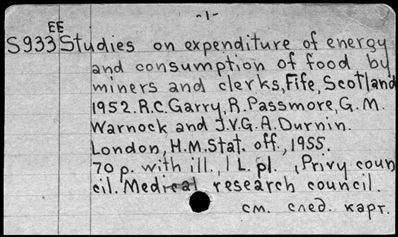 -1-
EE
S933 Studies on expenditure of energy
and consumption of food by
miners and clerks, Fife, Scotland
1952. R.C. Garry, R. Passmore, G. M.
Warnock and J.V.G.A. Durnin.
London, H.M. Stat. off., 1955.
70 p. with ill., 1 L. pl. , Privy coun
cil. Medical research council.
см. след. карт.